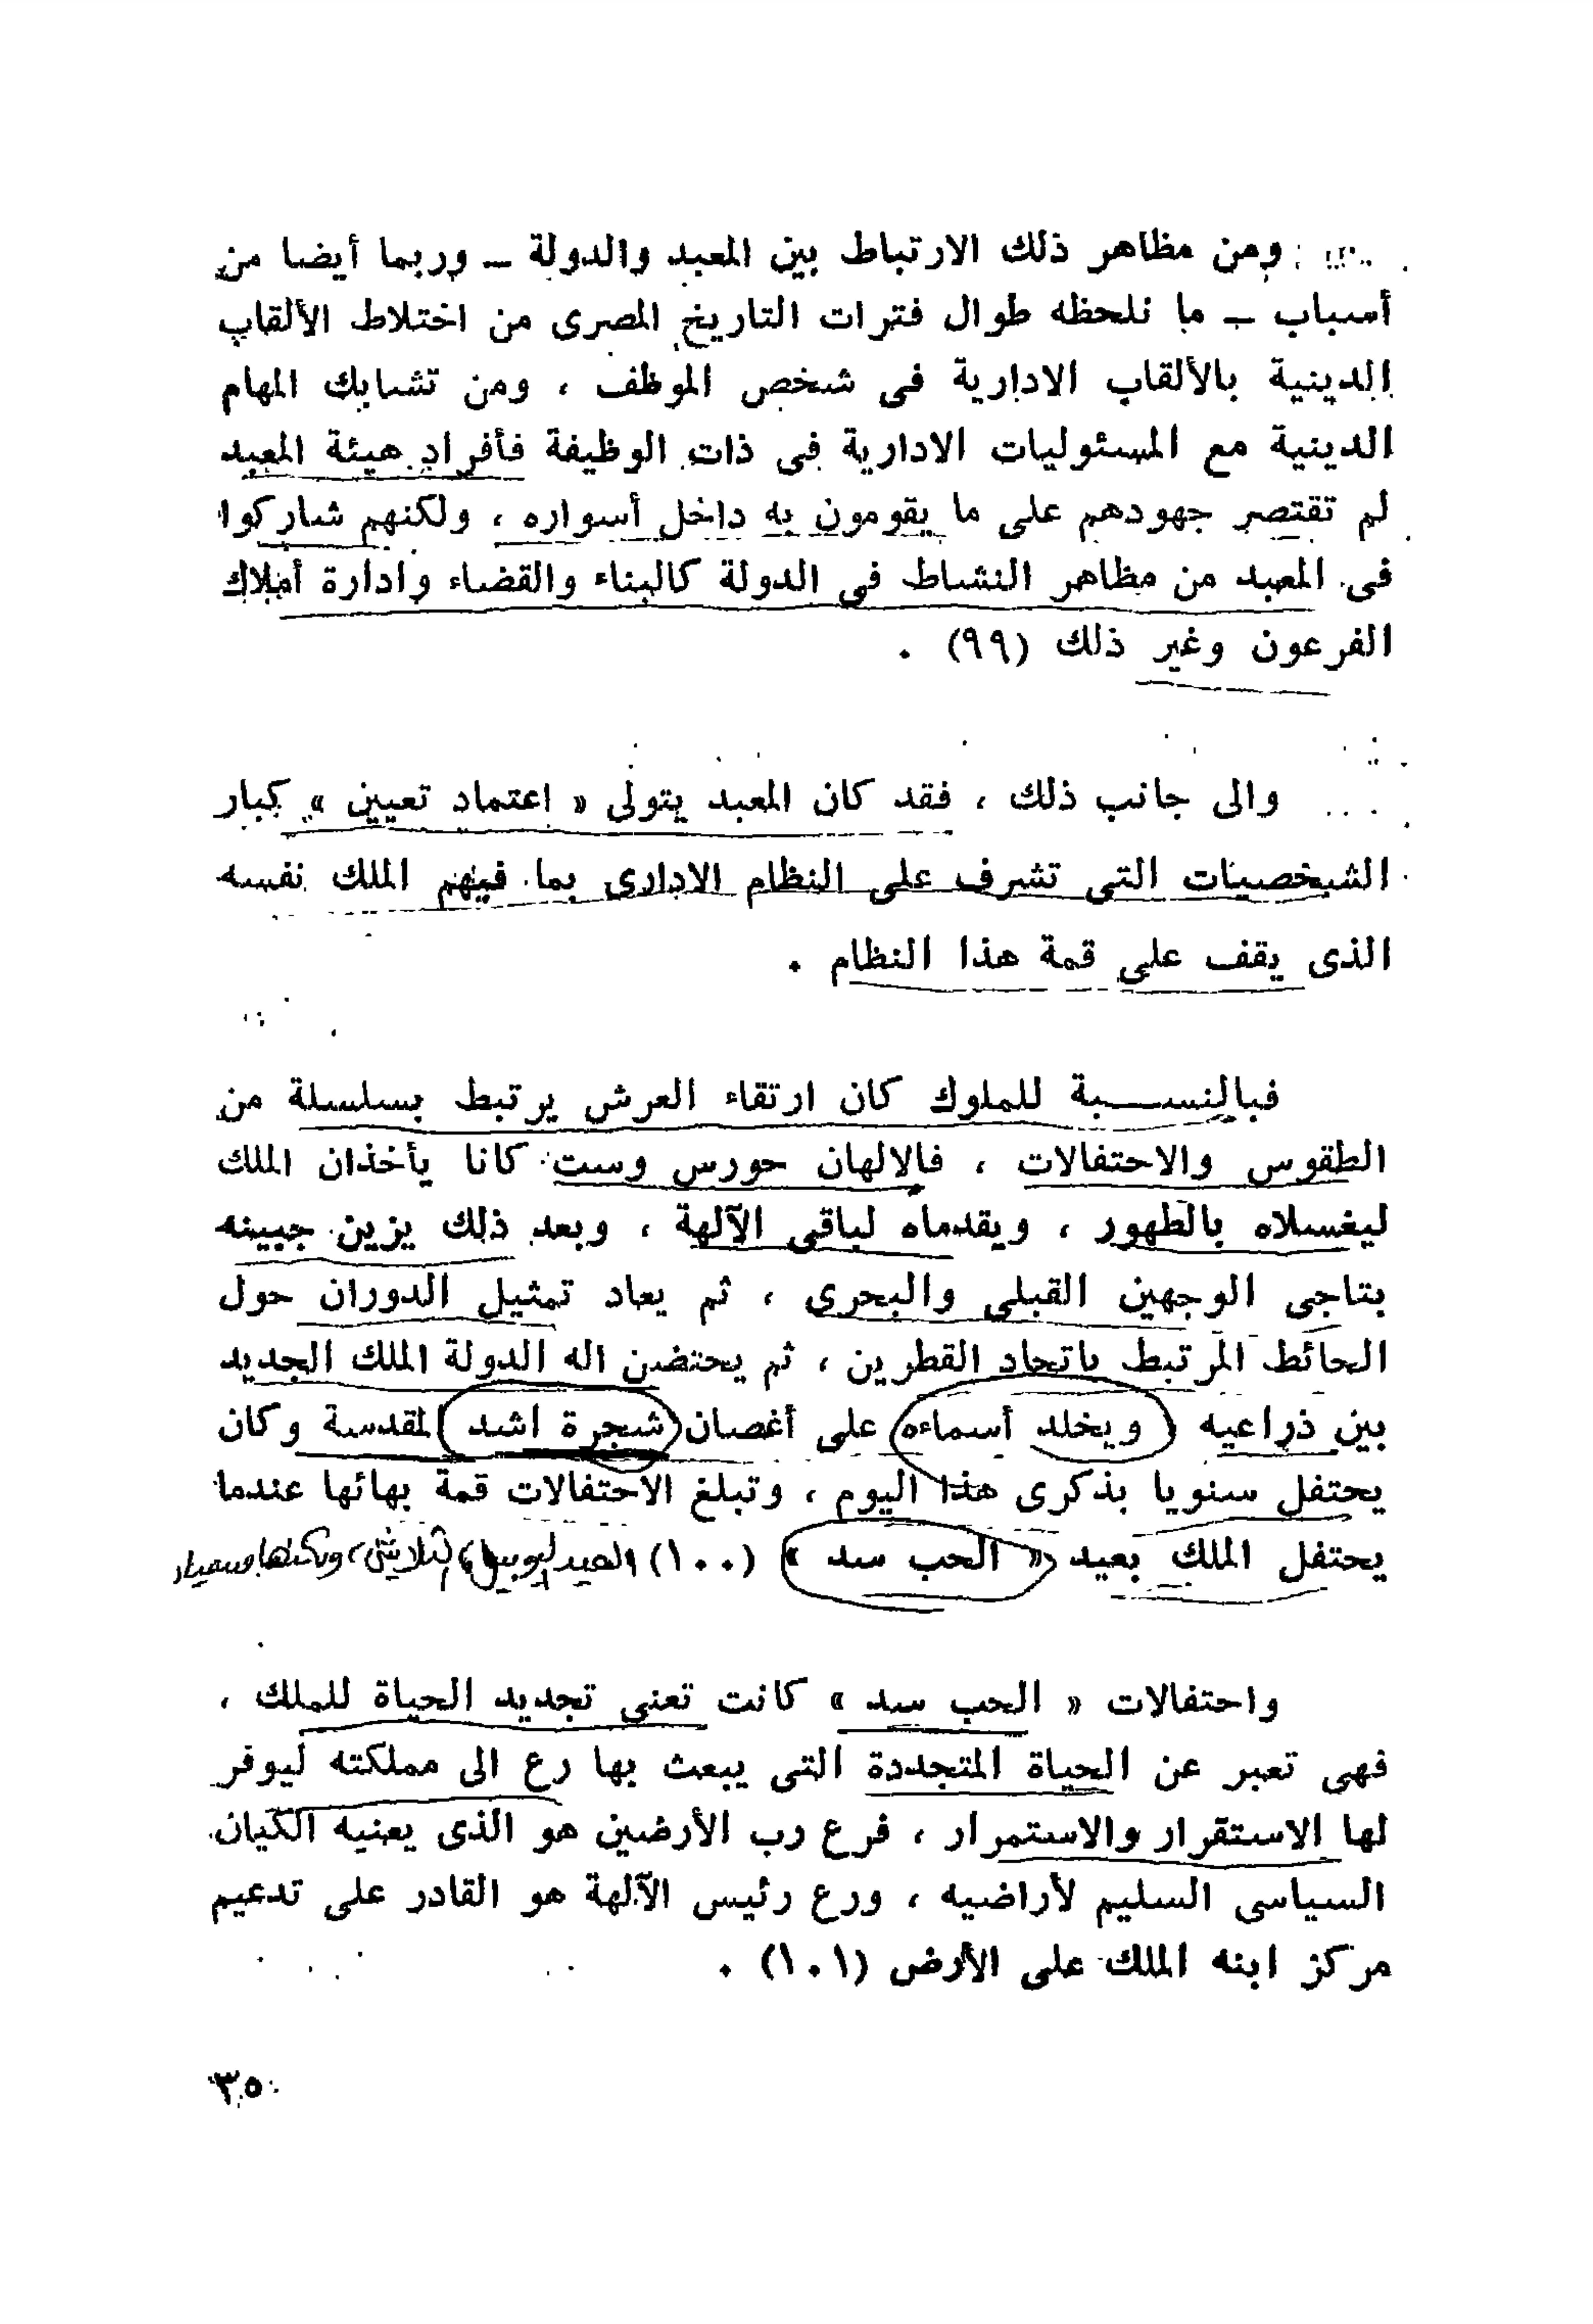 ومن مظاهر ذلك الارتباط بين المعبد والدولة – وربما أيضا من
أسباب – ما نلحظه طوال فترات التاريخ المصرى من اختلاط الألقاب
الدينية بالألقاب الادارية فى شخص الموظف ، ومن تشابك المهام
الدينية مع المسئوليات الادارية فى ذات الوظيفة فأفراد هيئة المعبد
لم تقتصر جهودهم على ما يقومون به داخل أسواره ، ولكنهم شاركوا
فى المعبد من مظاهر النشاط فى الدولة كالبناء والقضاء وادارة أملاك
الفرعون وغير ذلك (٩٩) .
والى جانب ذلك ، فقد كان المعبد يتولى « اعتماد تعيين » كبار
الشخصيات التى تشرف على النظام الادارى بما فيهم الملك نفسه
الذى يقف على قمة هذا النظام .
فبالنســـبة للملوك كان ارتقاء العرش يرتبط بسلسلة من
الطقوس والاحتفالات ، فالالهان حورس وست كانا يأخذان الملك
ليغسلاه بالطهور ، ويقدماه لباقى الآلهة ، وبعد ذلك يزين جبينه
بتاجى الوجهين القبلى والبحرى ، ثم يعاد تمثيل الدوران حول
الحائط المرتبط باتحاد القطرين ، ثم يحتضن اله الدولة الملك الجديد
بين ذراعيه ويخلد أسماءه على أغصان شجرة اشد المقدسة وكان
يحتفل سنويا بذكرى هذا اليوم ، وتبلغ الاحتفالات قمة بهائها عندما
يحتفل الملك بعيد « الحب سد » (١٠٠) العيد اليوبيل الثلاثينى
واحتفالات « الحب سد » كانت تعنى تجديد الحياة للملك ،
فهى تعبر عن الحياة المتجددة التى يبعث بها رع الى مملكته ليوفر
لها الاستقرار والاستمرار ، فرع رب الأرضين هو الذى يعنيه الكيان
السياسى السليم لأراضيه ، ورع رئيس الآلهة هو القادر على تدعيم
مركز ابنه الملك على الأرض (١٠١) .
٣٥